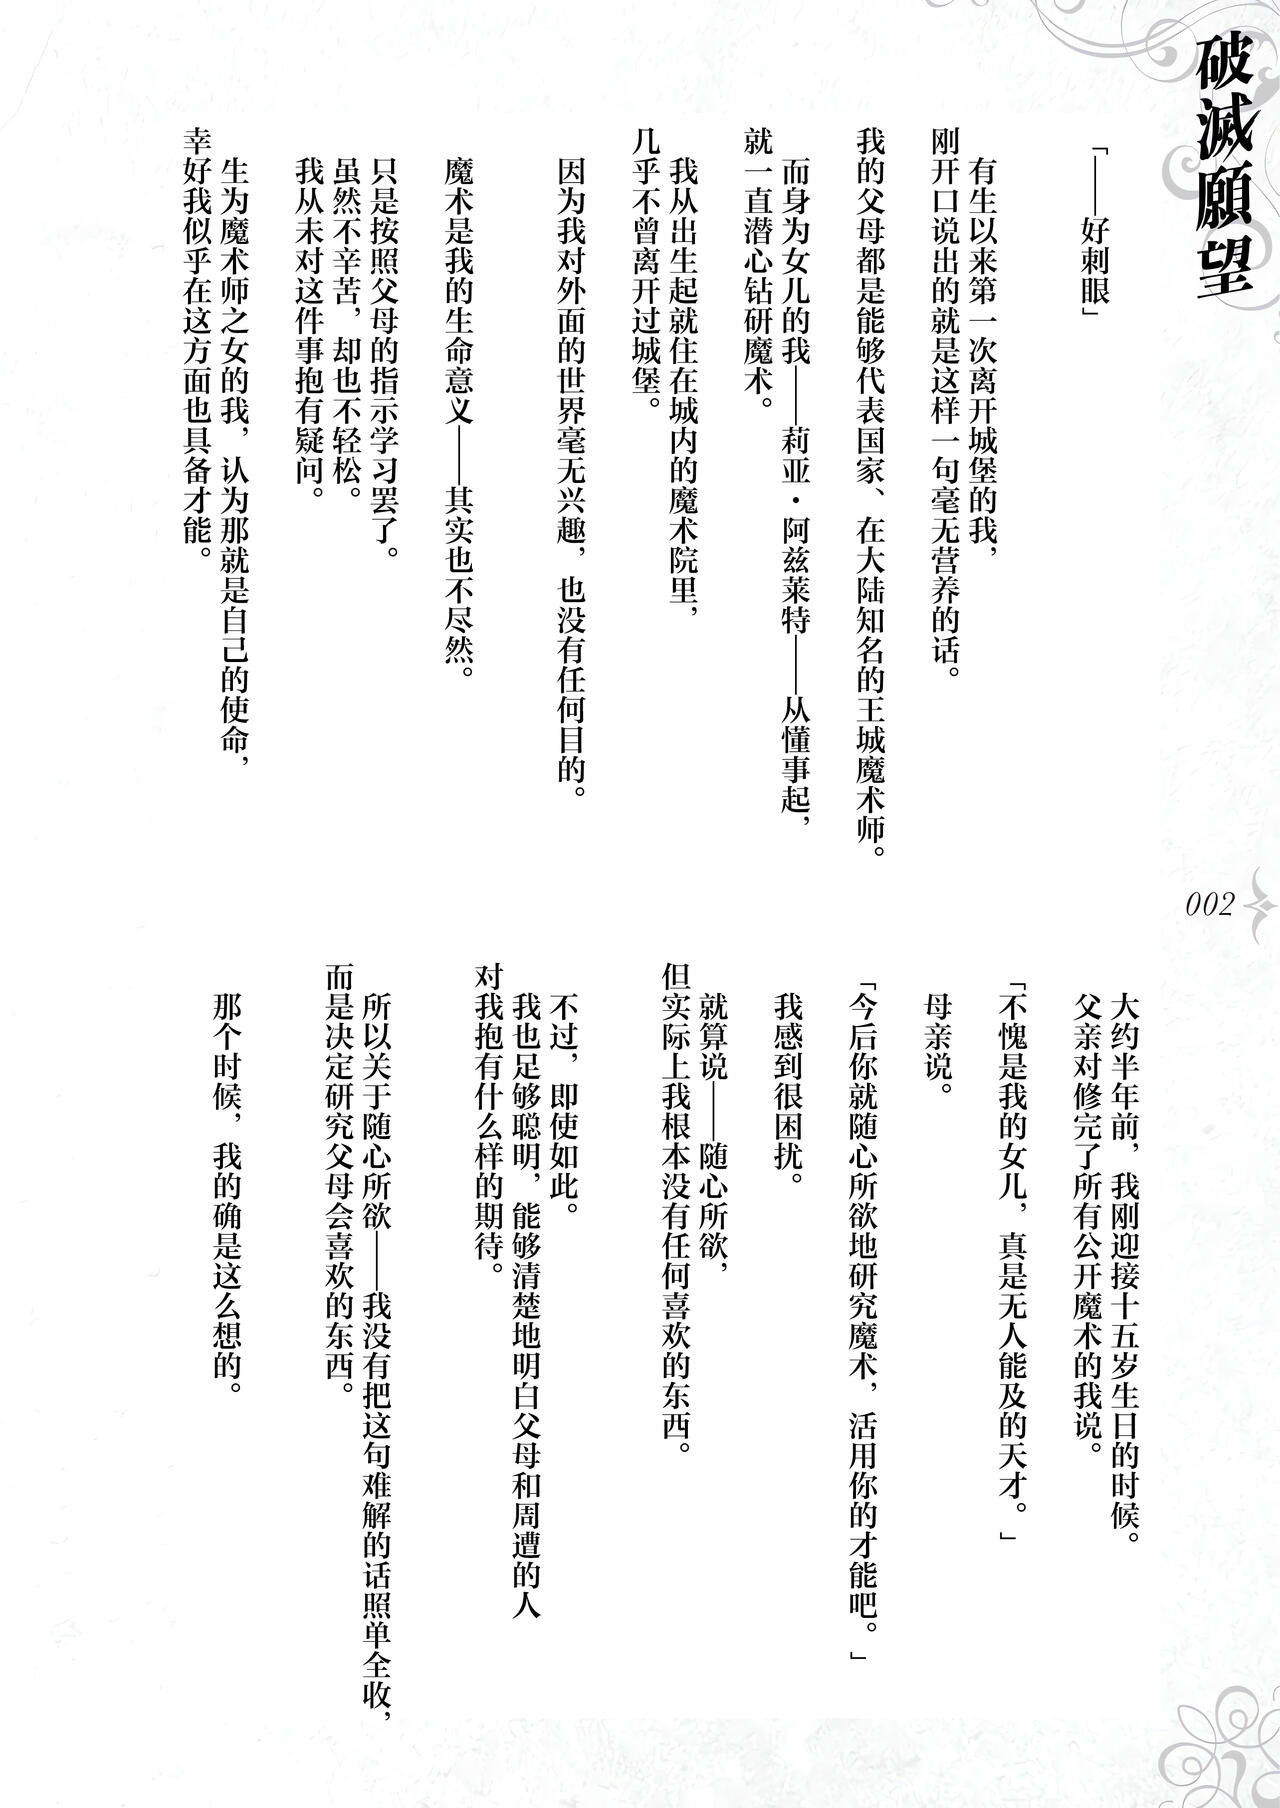 破滅願望
「——好刺眼」
有生以来第一次离开城堡的我，
刚开口说出的就是这样一句毫无营养的话。
我的父母都是能够代表国家、在大陆知名的王城魔术师。
而身为女儿的我——莉亚·阿兹莱特——从懂事起，
就一直潜心钻研魔术。
我从出生起就住在城内的魔术院里，
几乎不曾离开过城堡。
因为我对外面的世界毫无兴趣，也没有任何目的。
魔术是我的生命意义——其实也不尽然。
只是按照父母的指示学习罢了。
虽然不辛苦，却也不轻松。
我从未对这件事抱有疑问。
生为魔术师之女的我，认为那就是自己的使命，
幸好我似乎在这方面也具备才能。
002
大约半年前，我刚迎接十五岁生日的时候。
父亲对修完了所有公开魔术的我说。
「不愧是我的女儿，真是无人能及的天才。」
母亲说。
「今后你就随心所欲地研究魔术，活用你的才能吧。」
我感到很困扰。
就算说——随心所欲，
但实际上我根本没有任何喜欢的东西。
不过，即使如此。
我也足够聪明，能够清楚地明白父母和周遭的人
对我抱有什么样的期待。
所以关于随心所欲——我没有把这句难解的话照单全收，
而是决定研究父母会喜欢的东西。
那个时候，我的确是这么想的。